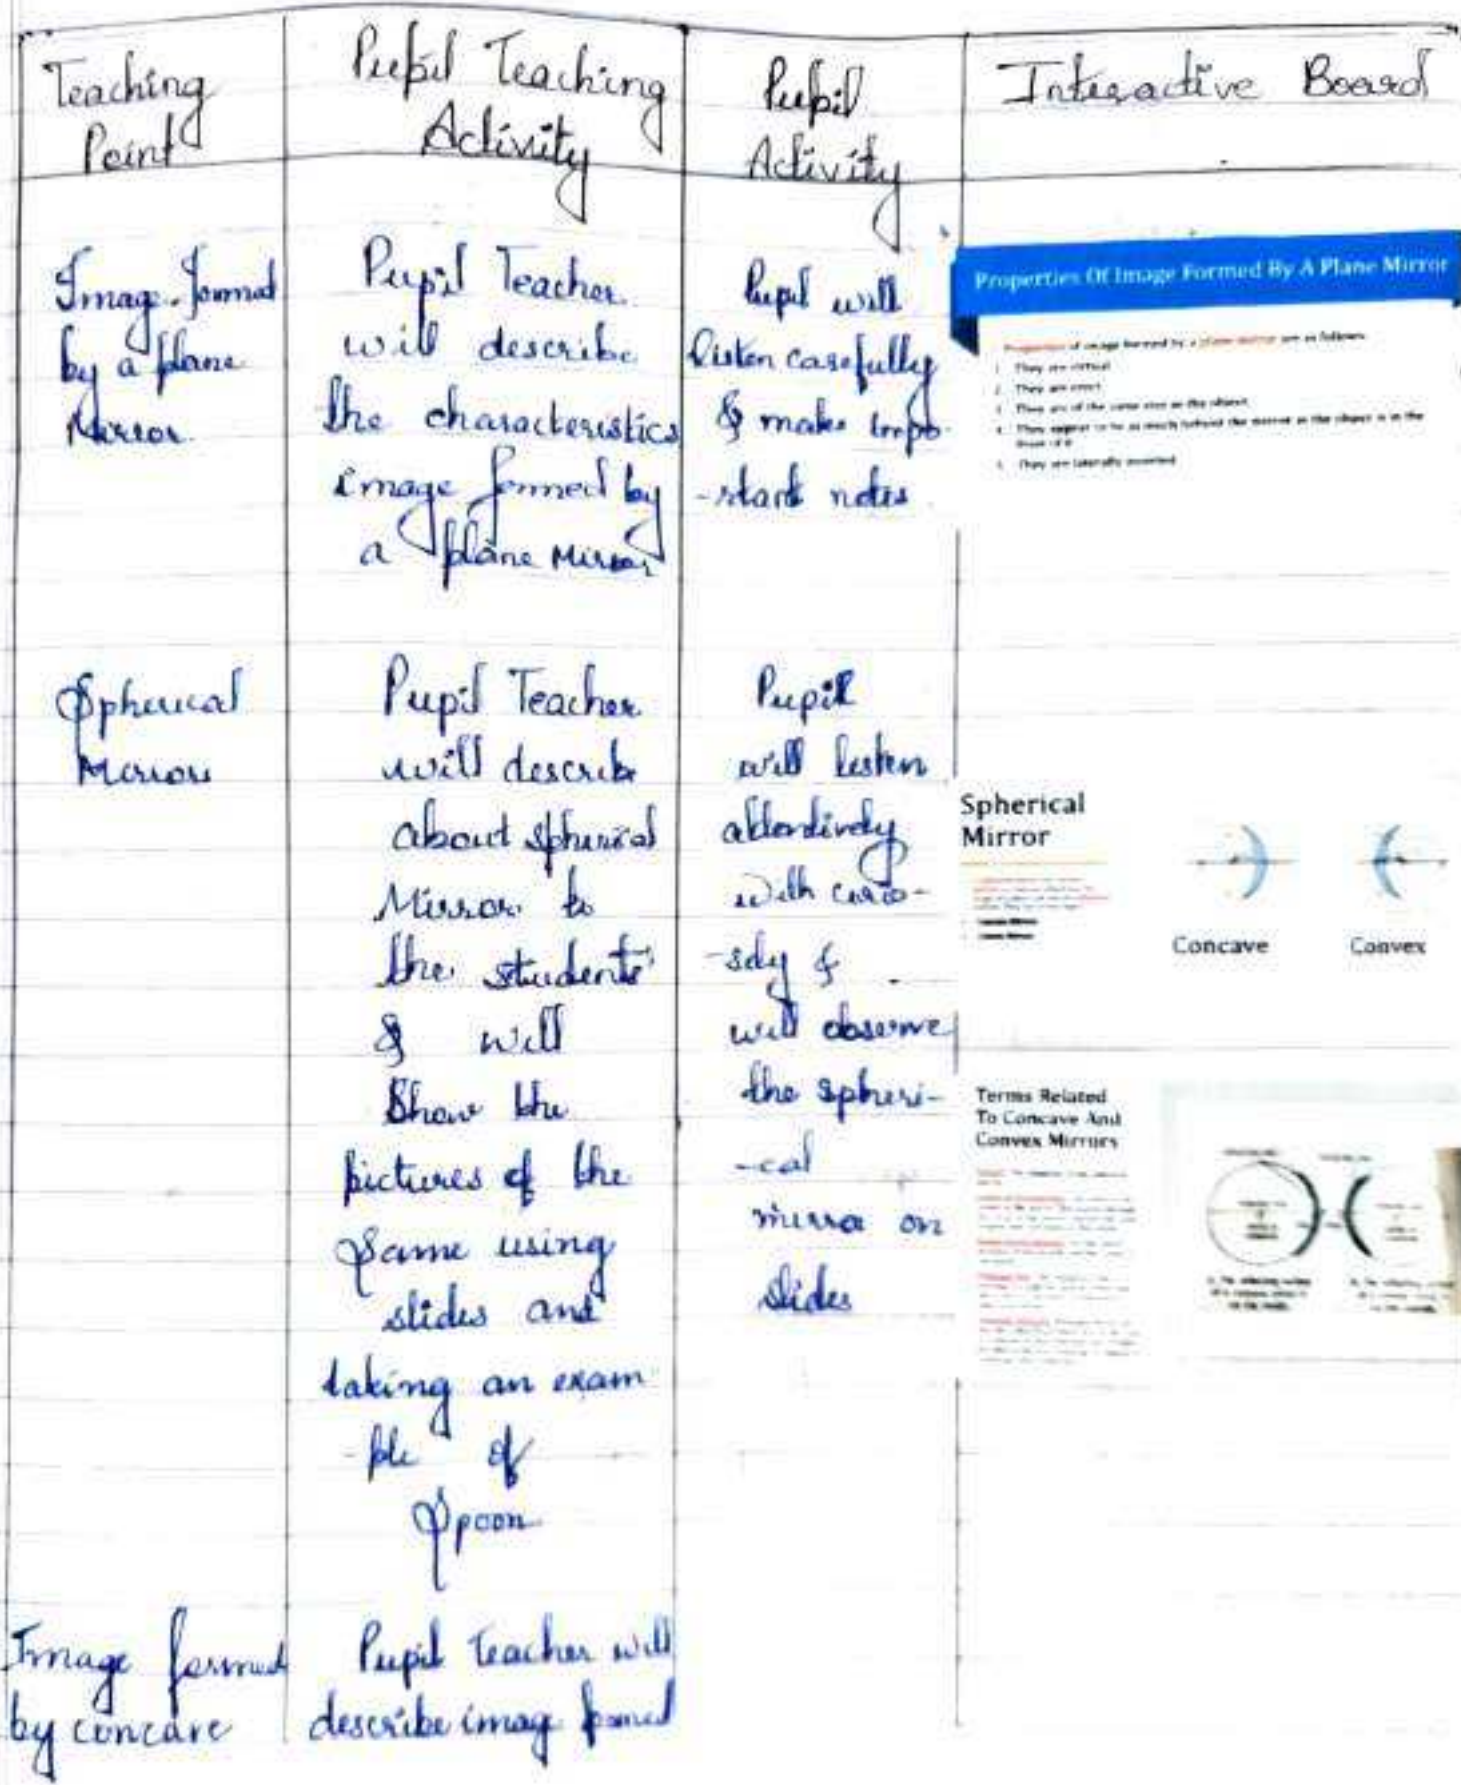 Teaching
Point
Pupil Teaching
Activity
Pupil
Activity
Interactive Board
Image formed
by a plane
Mirror
Pupil Teacher
will describe
the characteristics
image formed by
a plane Mirror
Pupil will
listen carefully
& make impo-
-rtant notes
Properties Of Image Formed By A Plane Mirror
Properties of image formed by a plane mirror are as follows
1. They are virtual
2. They are erect
3. They are of the same size as the object
4. They appear to be as much behind the mirror as the object is in the
front of it
5. They are laterally inverted
Spherical
Mirrors
Pupil Teacher
will describe
about spherical
Mirror to
the students
& will
Show the
pictures of the
Same using
slides and
taking an exam
-ple of
Spoon
Pupil
will listen
attentively
with curio-
-sity &
will observe
the spheri-
-cal
mirror on
slides
Spherical
Mirror
Concave
Convex
Terms Related
To Concave And
Convex Mirrors
Image formed
by concave
Pupil Teacher will
describe imag formed